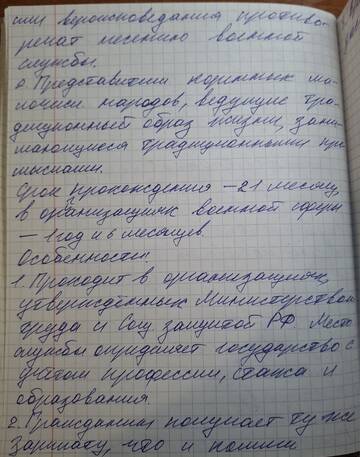 или вероисповедания противо
речат несению военной
службы.
о Представители коренных ма-
лочисл народов, ведущие тра-
диционный образ жизни, зани-
мающиеся традиционными про
мыслами.
Срок прохождения – 21 месяц,
в организациях военной сферы
– 1 год и 6 месяцев.
Особенности.
1. Проходит в организациях,
утверждённых Министерством
труда и Соц защитой РФ. Место
службы определяет государство с
учётом профессии, стажа и
образования
2. Гражданин получает ту же
зарплату, что и